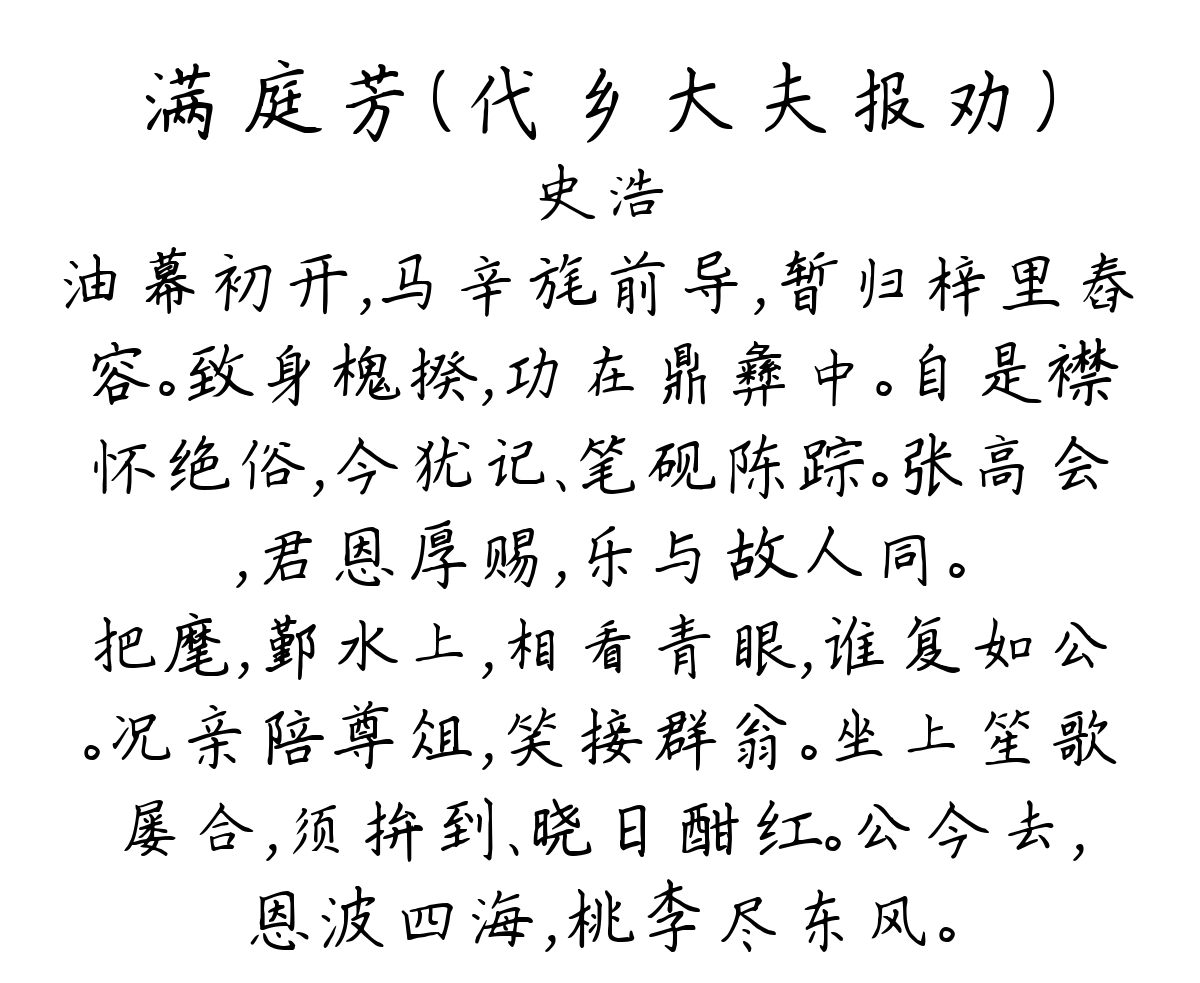 满庭芳(代乡大夫报劝)
史浩
油幕初开,马辛旄前导,暂归梓里舂
容。致身槐揆,功在鼎彝中。自是襟
怀绝俗,今犹记、笔砚陈踪。张高会
,君恩厚赐,乐与故人同。
把麾,鄞水上,相看青眼,谁复如公
。况亲陪尊俎,笑接群翁。坐上笙歌
屡合,须拚到、晓日酣红。公今去,
恩波四海,桃李尽东风。